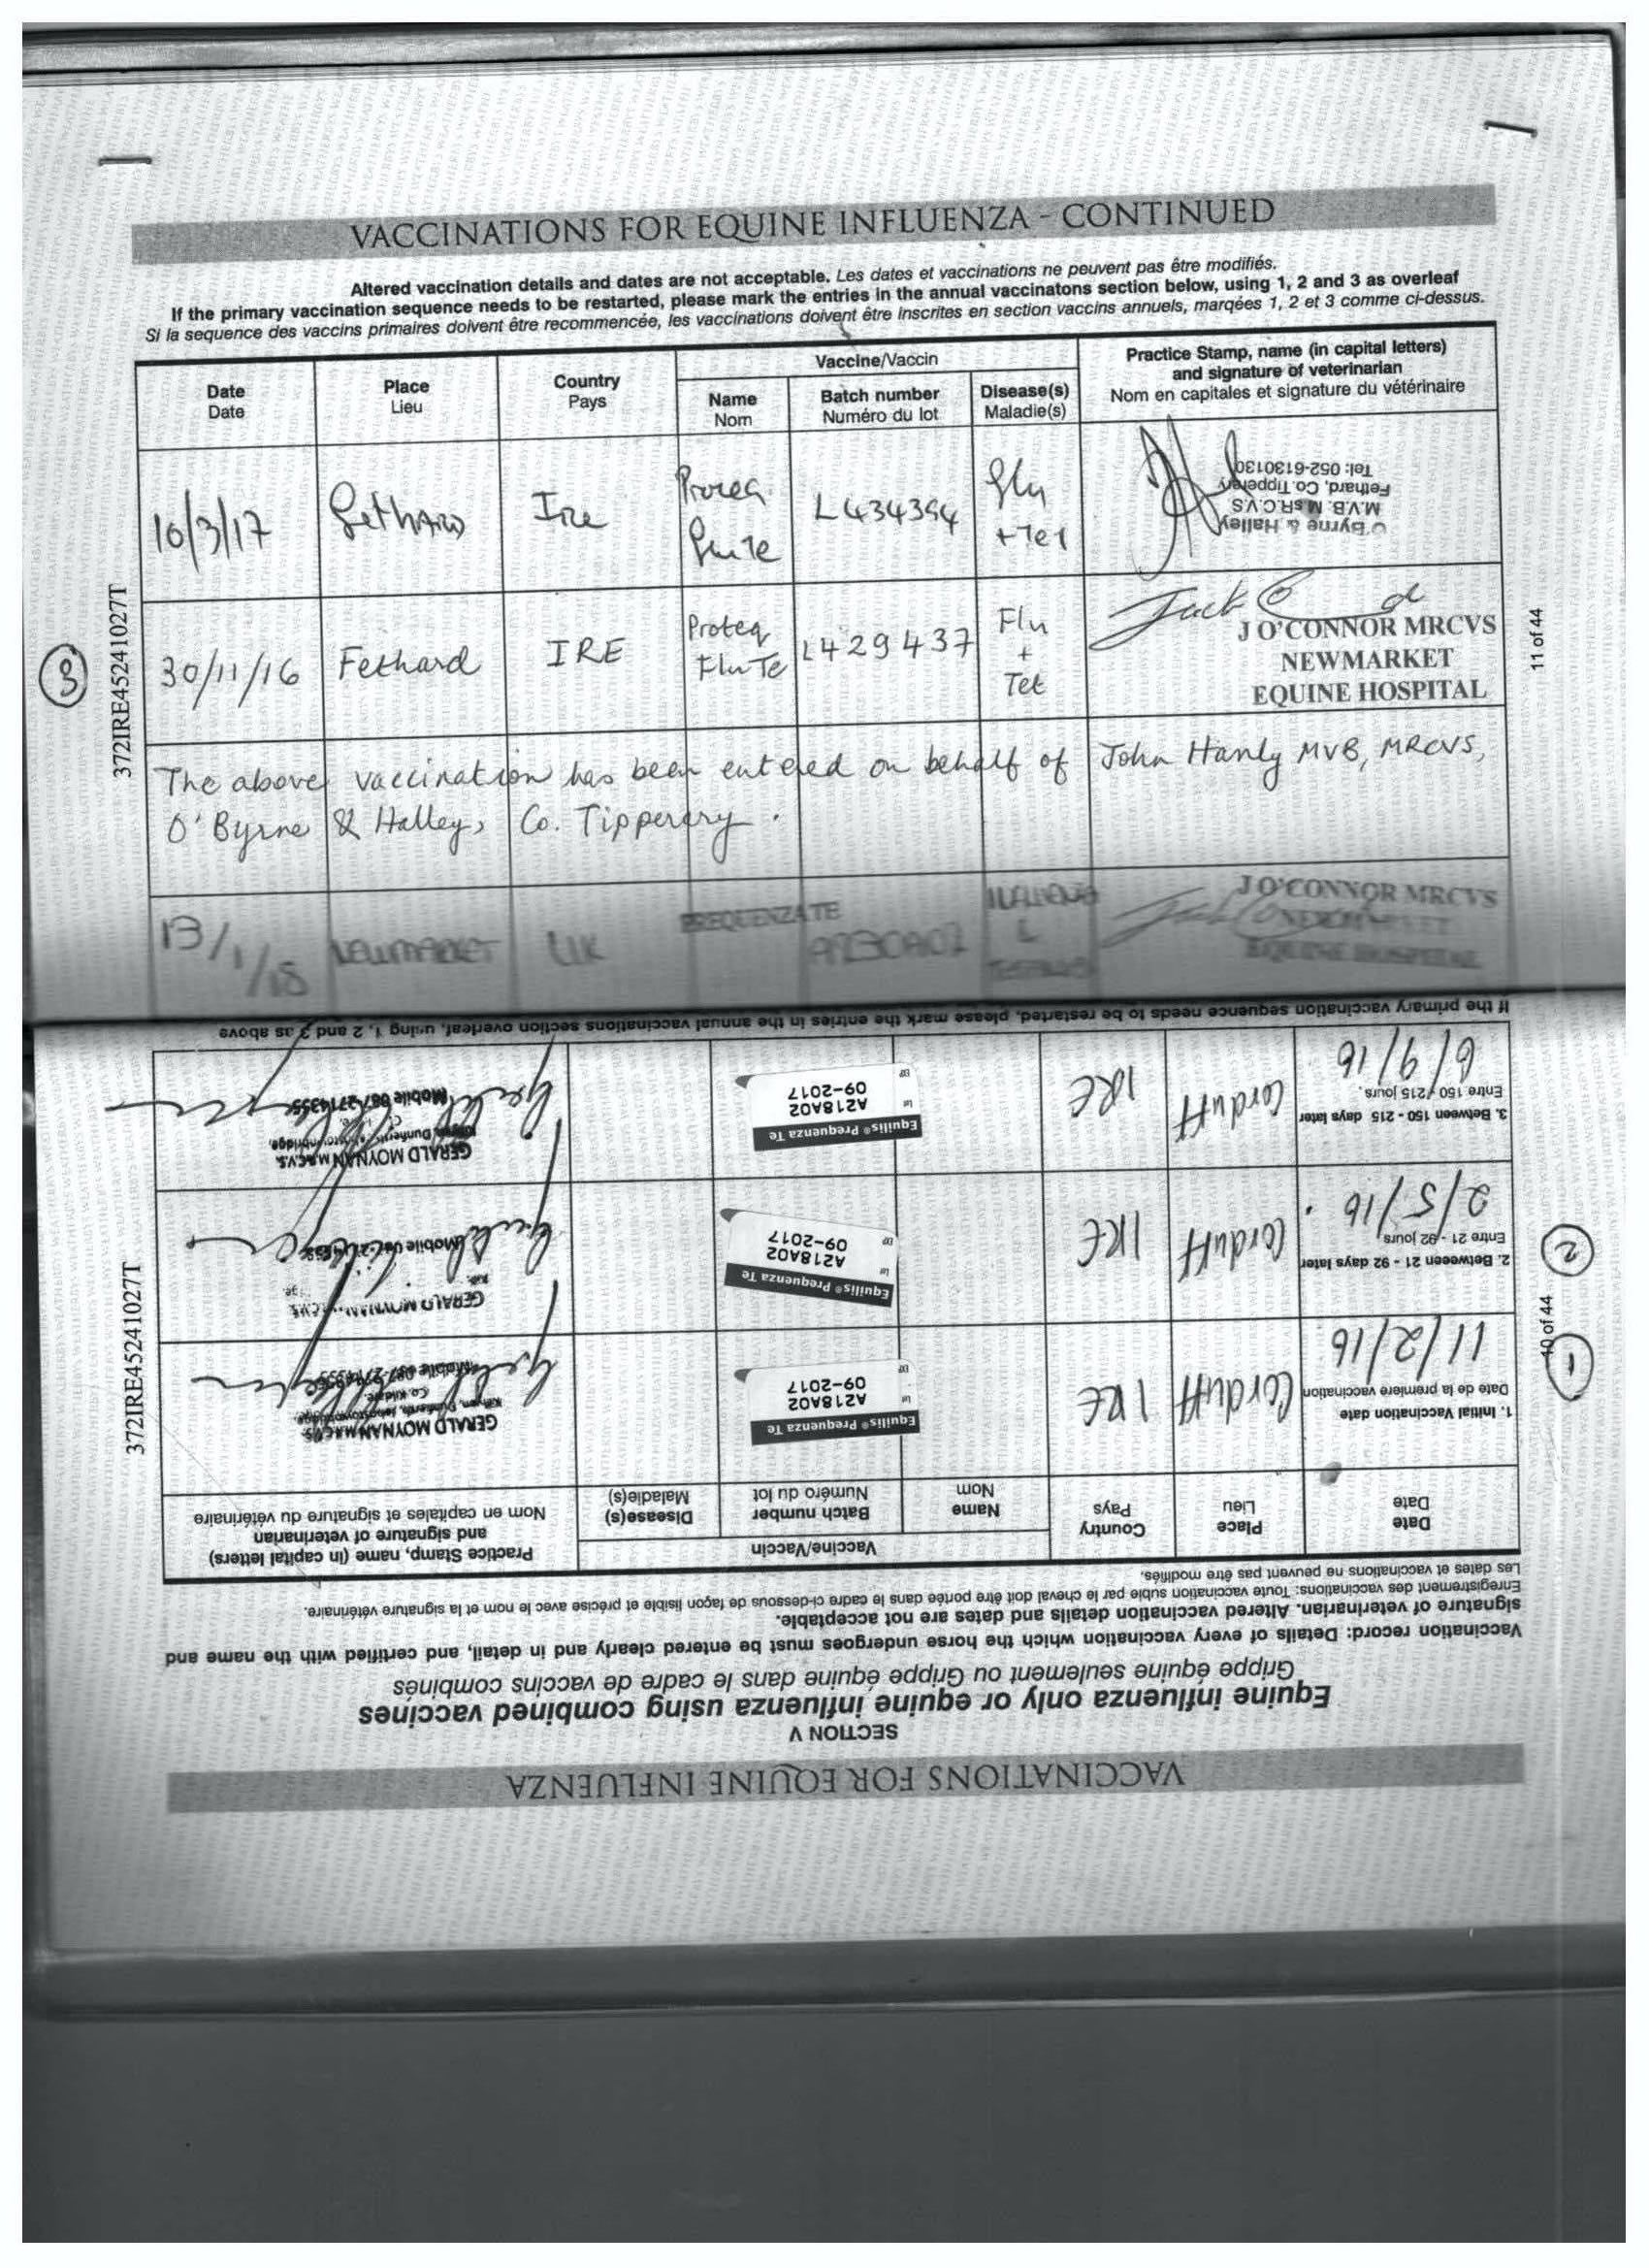 VACCINATIONS FOR EQUINE INFLUENZA - CONTINUED
Altered vaccination details and dates are not acceptable. Les dates et vaccinations ne peuvent pas être modifiés.
If the primary vaccination sequence needs to be restarted, please mark the entries in the annual vaccinatons section below, using 1, 2 and 3 as overleaf
Si la sequence des vaccins primaires doivent être recommencée, les vaccinations doivent être inscrites en section vaccins annuels, marqées 1, 2 et 3 comme ci-dessus.
Date
Date
Place
Lieu
Country
Pays
Vaccine/Vaccin
Name
Nom
Batch number
Numéro du lot
Disease(s)
Maladie(s)
Practice Stamp, name (in capital letters)
and signature of veterinarian
Nom en capitales et signature du vétérinaire
10/3/17 Fethard Ire
L434394
Flu
+Tet
O'Byrne & Halley
M.V.B. M.R.C.V.S
Fethard, Co. Tipperary
Tel: 052-6130130
3
372IRE45241027T
11 of 44
30/11/16 Fethard IRE
Proteq
FluTe
L429437
Flu
+
Tet
J O'CONNOR MRCVS
NEWMARKET
EQUINE HOSPITAL
The above vaccination has been entered on behalf of John Hanly MVB, MRCVS,
O'Byrne & Halley, Co. Tipperary.
13/1/18 NEWMARKET UK
PREQUENZA TE
A230A02
J O'CONNOR MRCVS
NEWMARKET
EQUINE HOSPITAL
VACCINATIONS FOR EQUINE INFLUENZA
SECTION V
Equine influenza only or equine influenza using combined vaccines
Grippe équine seulement ou Grippe équine dans le cadre de vaccins combinés
Vaccination record: Details of every vaccination which the horse undergoes must be entered clearly and in detail, and certified with the name and
signature of veterinarian. Altered vaccination details and dates are not acceptable.
Enregistrement des vaccinations: Toute vaccination subie par le cheval doit être portée dans le cadre ci-dessous de façon lisible et précise avec le nom et la signature vétérinaire.
Les dates et vaccinations ne peuvent pas être modifiés.
Date
Date
Place
Lieu
Country
Pays
Vaccine/Vaccin
Name
Nom
Batch number
Numéro du lot
Disease(s)
Maladie(s)
Practice Stamp, name (in capital letters)
and signature of veterinarian
Nom en capitales et signature du vétérinaire
10 of 44
1
1. Initial Vaccination date
Date de la premiere vaccination
11/2/16
Corduff IRE
Equilis® Prequenza Te
Lot A218A02
EXP 09-2017
GERALD MOYNAN M.R.C.V.S.
Co. Kildare.
2
2. Between 21 - 92 days later
Entre 21 - 92 jours
2/5/16
Corduff IRE
Equilis® Prequenza Te
Lot A218A02
EXP 09-2017
GERALD MOYNAN
372IRE45241027T
3. Between 150 - 215 days later
Entre 150 - 215 jours.
6/9/16
Corduff IRE
Equilis® Prequenza Te
Lot A218A02
EXP 09-2017
GERALD MOYNAN M.R.C.V.S.
Mobile 087-2714355
If the primary vaccination sequence needs to be restarted, please mark the entries in the annual vaccinations section overleaf, using 1, 2 and 3 as above